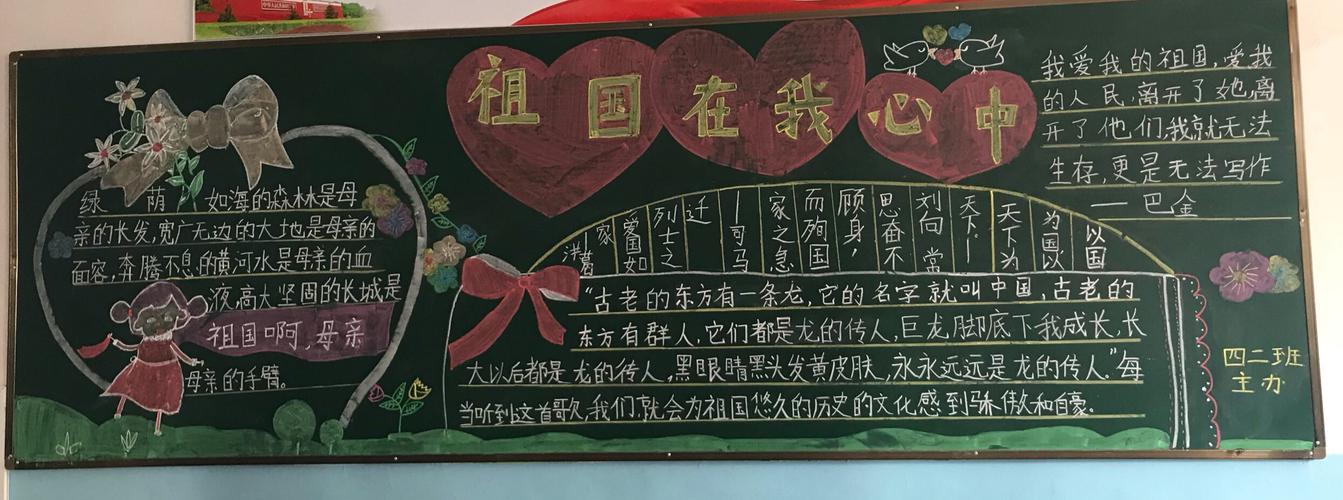 祖国在我心中
绿 荫 如海的森林是母
亲的长发,宽广无边的大地是母亲的
面容,奔腾不息的黄河水是母亲的血
液,高大坚固的长城是
祖国啊,母亲
母亲的手臂。
以国
为国以
天下为
天下!—
刘向 常
思奋不
顾身,
而殉国
家之急
—司马
迁
列士之
爱国如
家
"古老的东方有一条龙,它的名字就叫中国,古老的
东方有群人,它们都是龙的传人,巨龙脚底下我成长,长
大以后都是龙的传人,黑眼睛黑头发黄皮肤,永永远远是龙的传人."每
当听到这首歌,我们就会为祖国悠久的历史的文化感到骄傲和自豪。
我爱我的祖国,爱我
的人民,离开了她,离
开了他们,我就无法
生存,更是无法写作
——巴金
四二班
主办